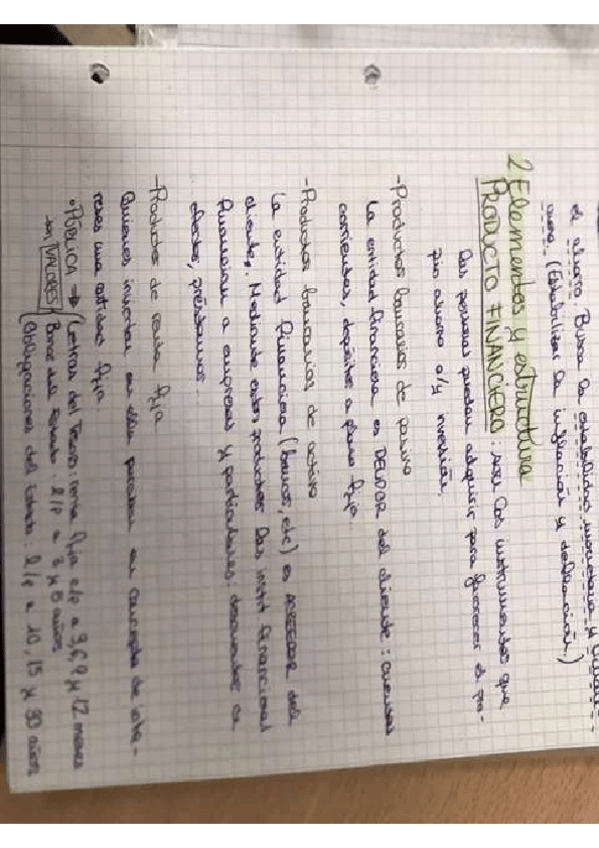 el ahorro. Busca la estabilidad monetaria y
(Estabilizar la inflación y deflación.)
2. Elementos y estructura
PRODUCTO FINANCIERO: son los instrumentos que
las personas pueden adquirir para favorecer el pro-
pio ahorro o/y inversión.
-Productos bancarios de pasivo
La entidad financiera es DEUDOR del cliente: cuentas
corrientes, depósitos a plazo fijo...
-Productos bancarios de activo
La entidad financiera (bancos, etc) es ACREEDOR del
cliente. Mediante estos productos las instit. financieras
financian a empresas y particulares: descuentos de
efectos, préstamos...
-Productos de renta fija
Quienes invierten en ellos perciben en concepto de inte-
reses una cantidad fija.
•PÚBLICA → Letras del Tesoro: renta fija c/p a 3,6,9 y 12 meses
son VALORES Bonos del Estado: l/p a 3 y 5 años
Obligaciones del Estado: l/p a 10, 15 y 30 años